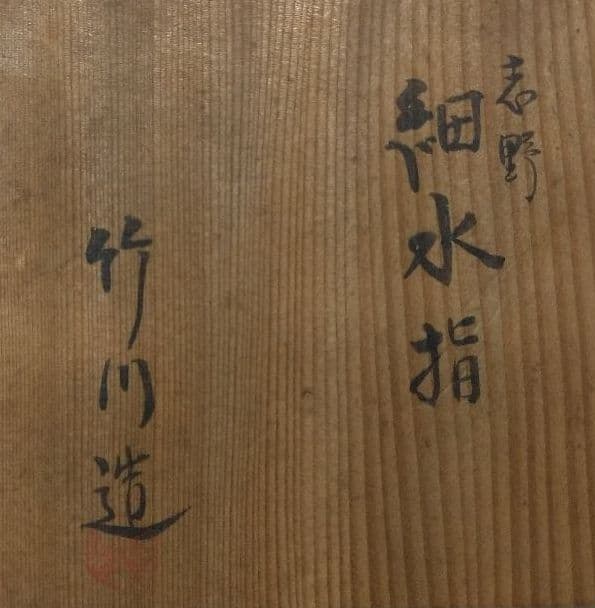 志野
細水指
竹川造